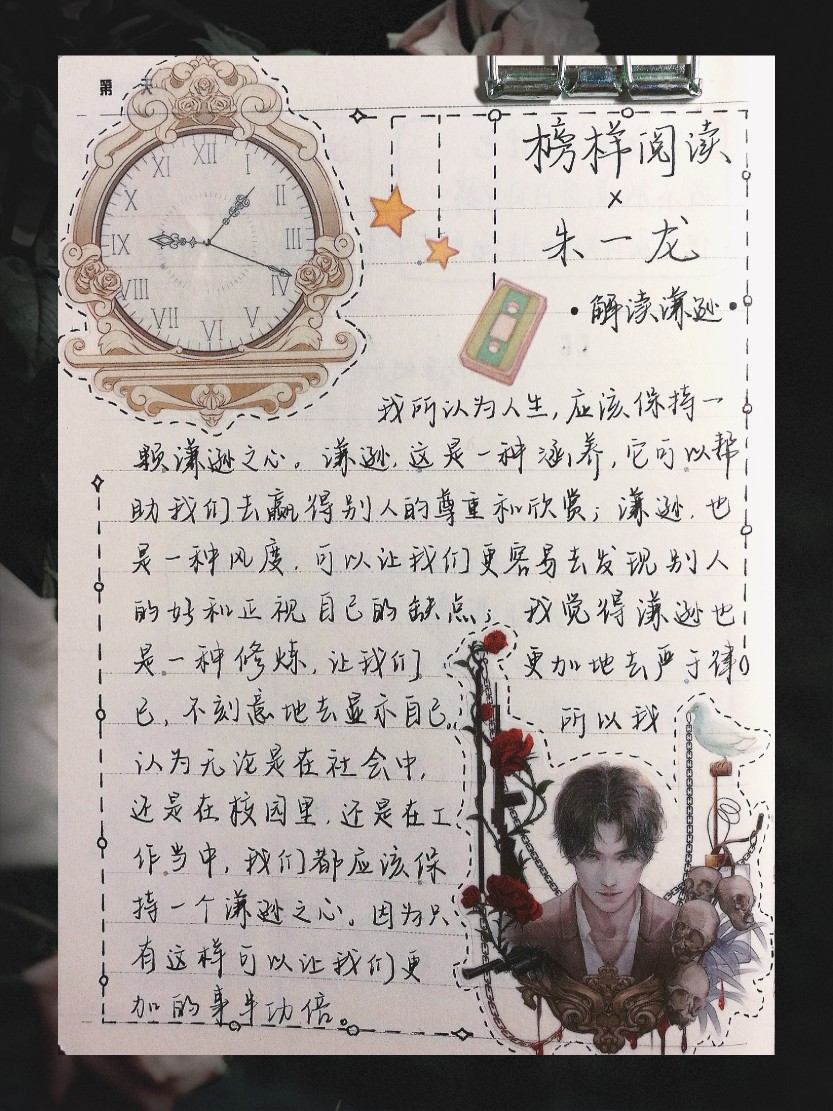 第 天
XII
I
II
III
IV
V
VI
VII
VIII
IX
X
XI
榜样阅读
×
朱一龙
·解读谦逊·
我所认为人生,应该保持一
颗谦逊之心。谦逊,这是一种涵养,它可以帮
助我们去赢得别人的尊重和欣赏;谦逊,也
是一种风度,可以让我们更容易去发现别人
的好和正视自己的缺点;我觉得谦逊也
是一种修炼,让我们更加地去严于律
己,不刻意地去显示自己。所以我
认为无论是在社会中,
还是在校园里,还是在工
作当中,我们都应该保
持一个谦逊之心。因为只
有这样可以让我们更
加的事半功倍。